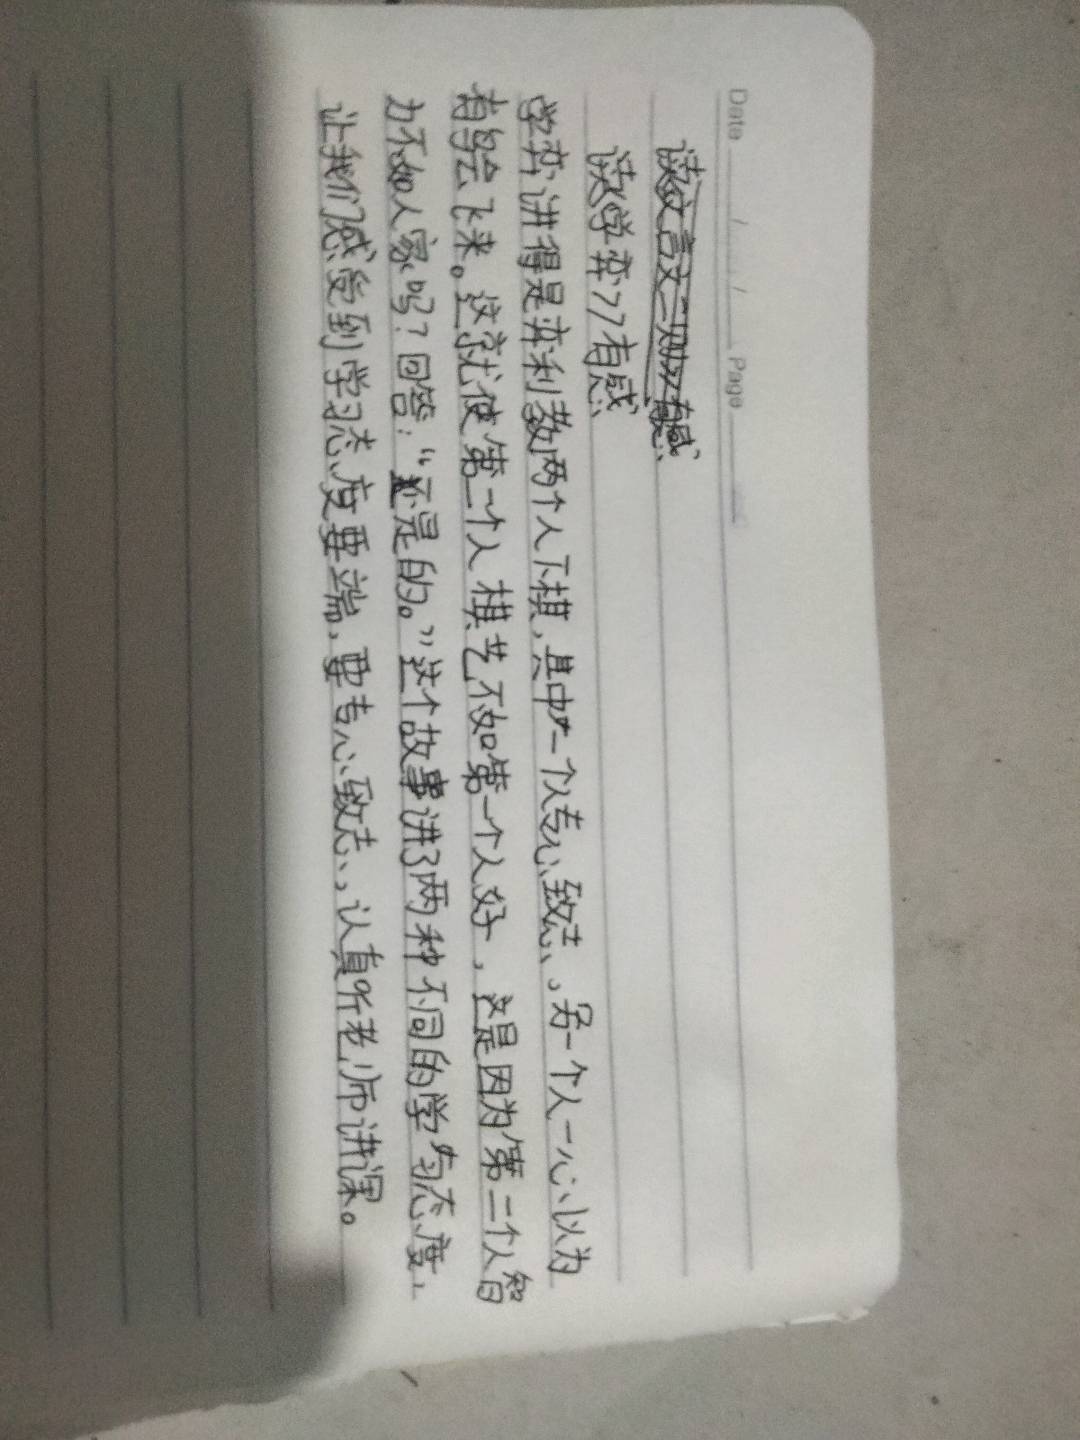 Date / / Page
读文言文二则有感
读学弈>>有感
学弈讲得是弈利教两个人下棋,其中一个人专心致志、。另一个人一心以为
有鸟会飞来。这就使第一个人棋艺不如第一个人好,这是因为第二个人智
力不如人家吗?回答:“不是的。”这个故事讲了两种不同的学习态度,
让我们感受到学习态度要端,要专心致志、,认真听老师讲课。